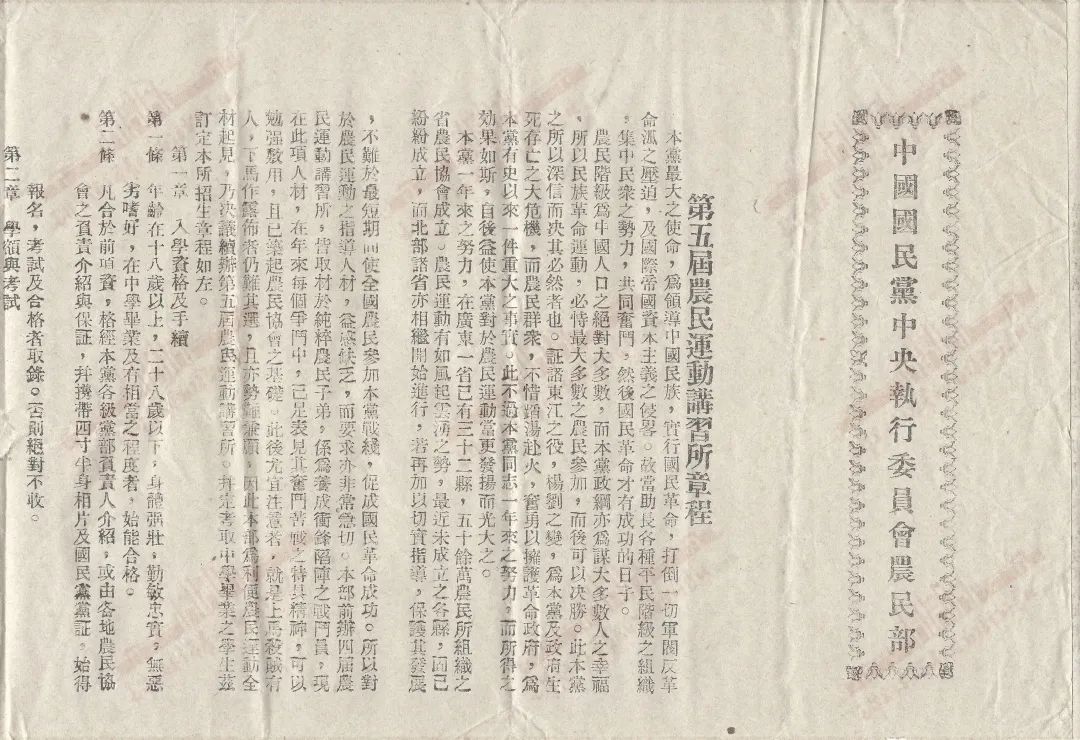 中國國民黨中央執行委員會農民部
第五屆農民運動講習所章程
本黨最大之使命，爲領導中國民族，實行國民革命，打倒一切軍閥反革
命派之壓迫，及國際帝國資本主義之侵畧。故當助長各種平民階級之組織
，集中民衆之勢力，共同奮鬥，然後國民革命才有成功的日子。
農民階級爲中國人口之絕對大多數，而本黨政綱亦爲謀大多數人之幸福
，所以民族革命運動，必恃最大多數之農民參加，而後可以决勝。此本黨
之所以深信而决其必然者也。証諸東江之役，楊劉之變，爲本黨及政府生
死存亡之大危機，而農民群衆，不惜蹈湯赴火，奮勇以擁護革命政府，爲
本黨有史以來一件重大之事實。此不過本黨同志一年來之努力，而所得之
効果如斯，自後益使本黨對於農民運動當更發揚而光大之。
本黨一年來之努力，在廣東一省已有三十二縣，五十餘萬農民所組織之
省農民協會成立。農民運動有如風起雲湧之勢，最近未成立之各縣，固已
紛紛成立，而北部諸省亦相繼開始進行，若再加以切實指導，保護其發展
，不難於最短期而使全國農民參加本黨戰綫，促成國民革命成功。所以對
於農民運動之指導人材，益感缺乏，而要求亦非常急切。本部前辦四届農
民運動講習所，皆取材於純粹農民子弟，係爲養成衝鋒陷陣之戰鬥員，現
在此項人材，在年來每個爭鬥中，已足表見其奮鬥苦戰之特具精神，可以
勉强敷用，且已築起農民協會之基礎。此後尤宜注意者，就是上馬殺賊有
人，下馬作露佈者仍難其選，且亦勢難兼顧，因此本部爲利便農民運動全
材起見，乃決議續辦第五届農民運動講習所。并定考取中學畢業之學生茲
訂定本所招生章程如左。
第一章　入學資格及手續
第一條　年齡在十八歲以上，二十八歲以下，身體强壯，勤敏忠實，無惡
劣嗜好，在中學畢業及有相當之程度者，始能合格。
第二條　凡合於前項資，格經本黨各級黨部負責人介紹，或由各地農民協
會之負責介紹與保証，并携帶四寸半身相片及國民黨黨証，始得
報名，考試及合格者取錄。否則絕對不收。
第二章　學額與考試